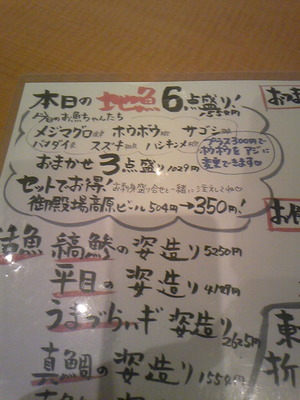 本日の地魚6点盛り!
1554円
今日のお魚ちゃんたち
メジマグロ ホウボウ サゴシ
バダイ スズキ ハシキンメ
プラス300円で
ホウボウを アジに
変更できます
おまかせ3点盛り1029円
セットでお得! お刺身盛り合せと一緒に注文してね
御殿場高原ビール 504円→350円!
活魚 縞鯵の姿造り 5250円
平目の 姿造り 4129円
うまづらハギ 姿造り 2625円
真鯛の 姿造り 1554円
おま
東
折